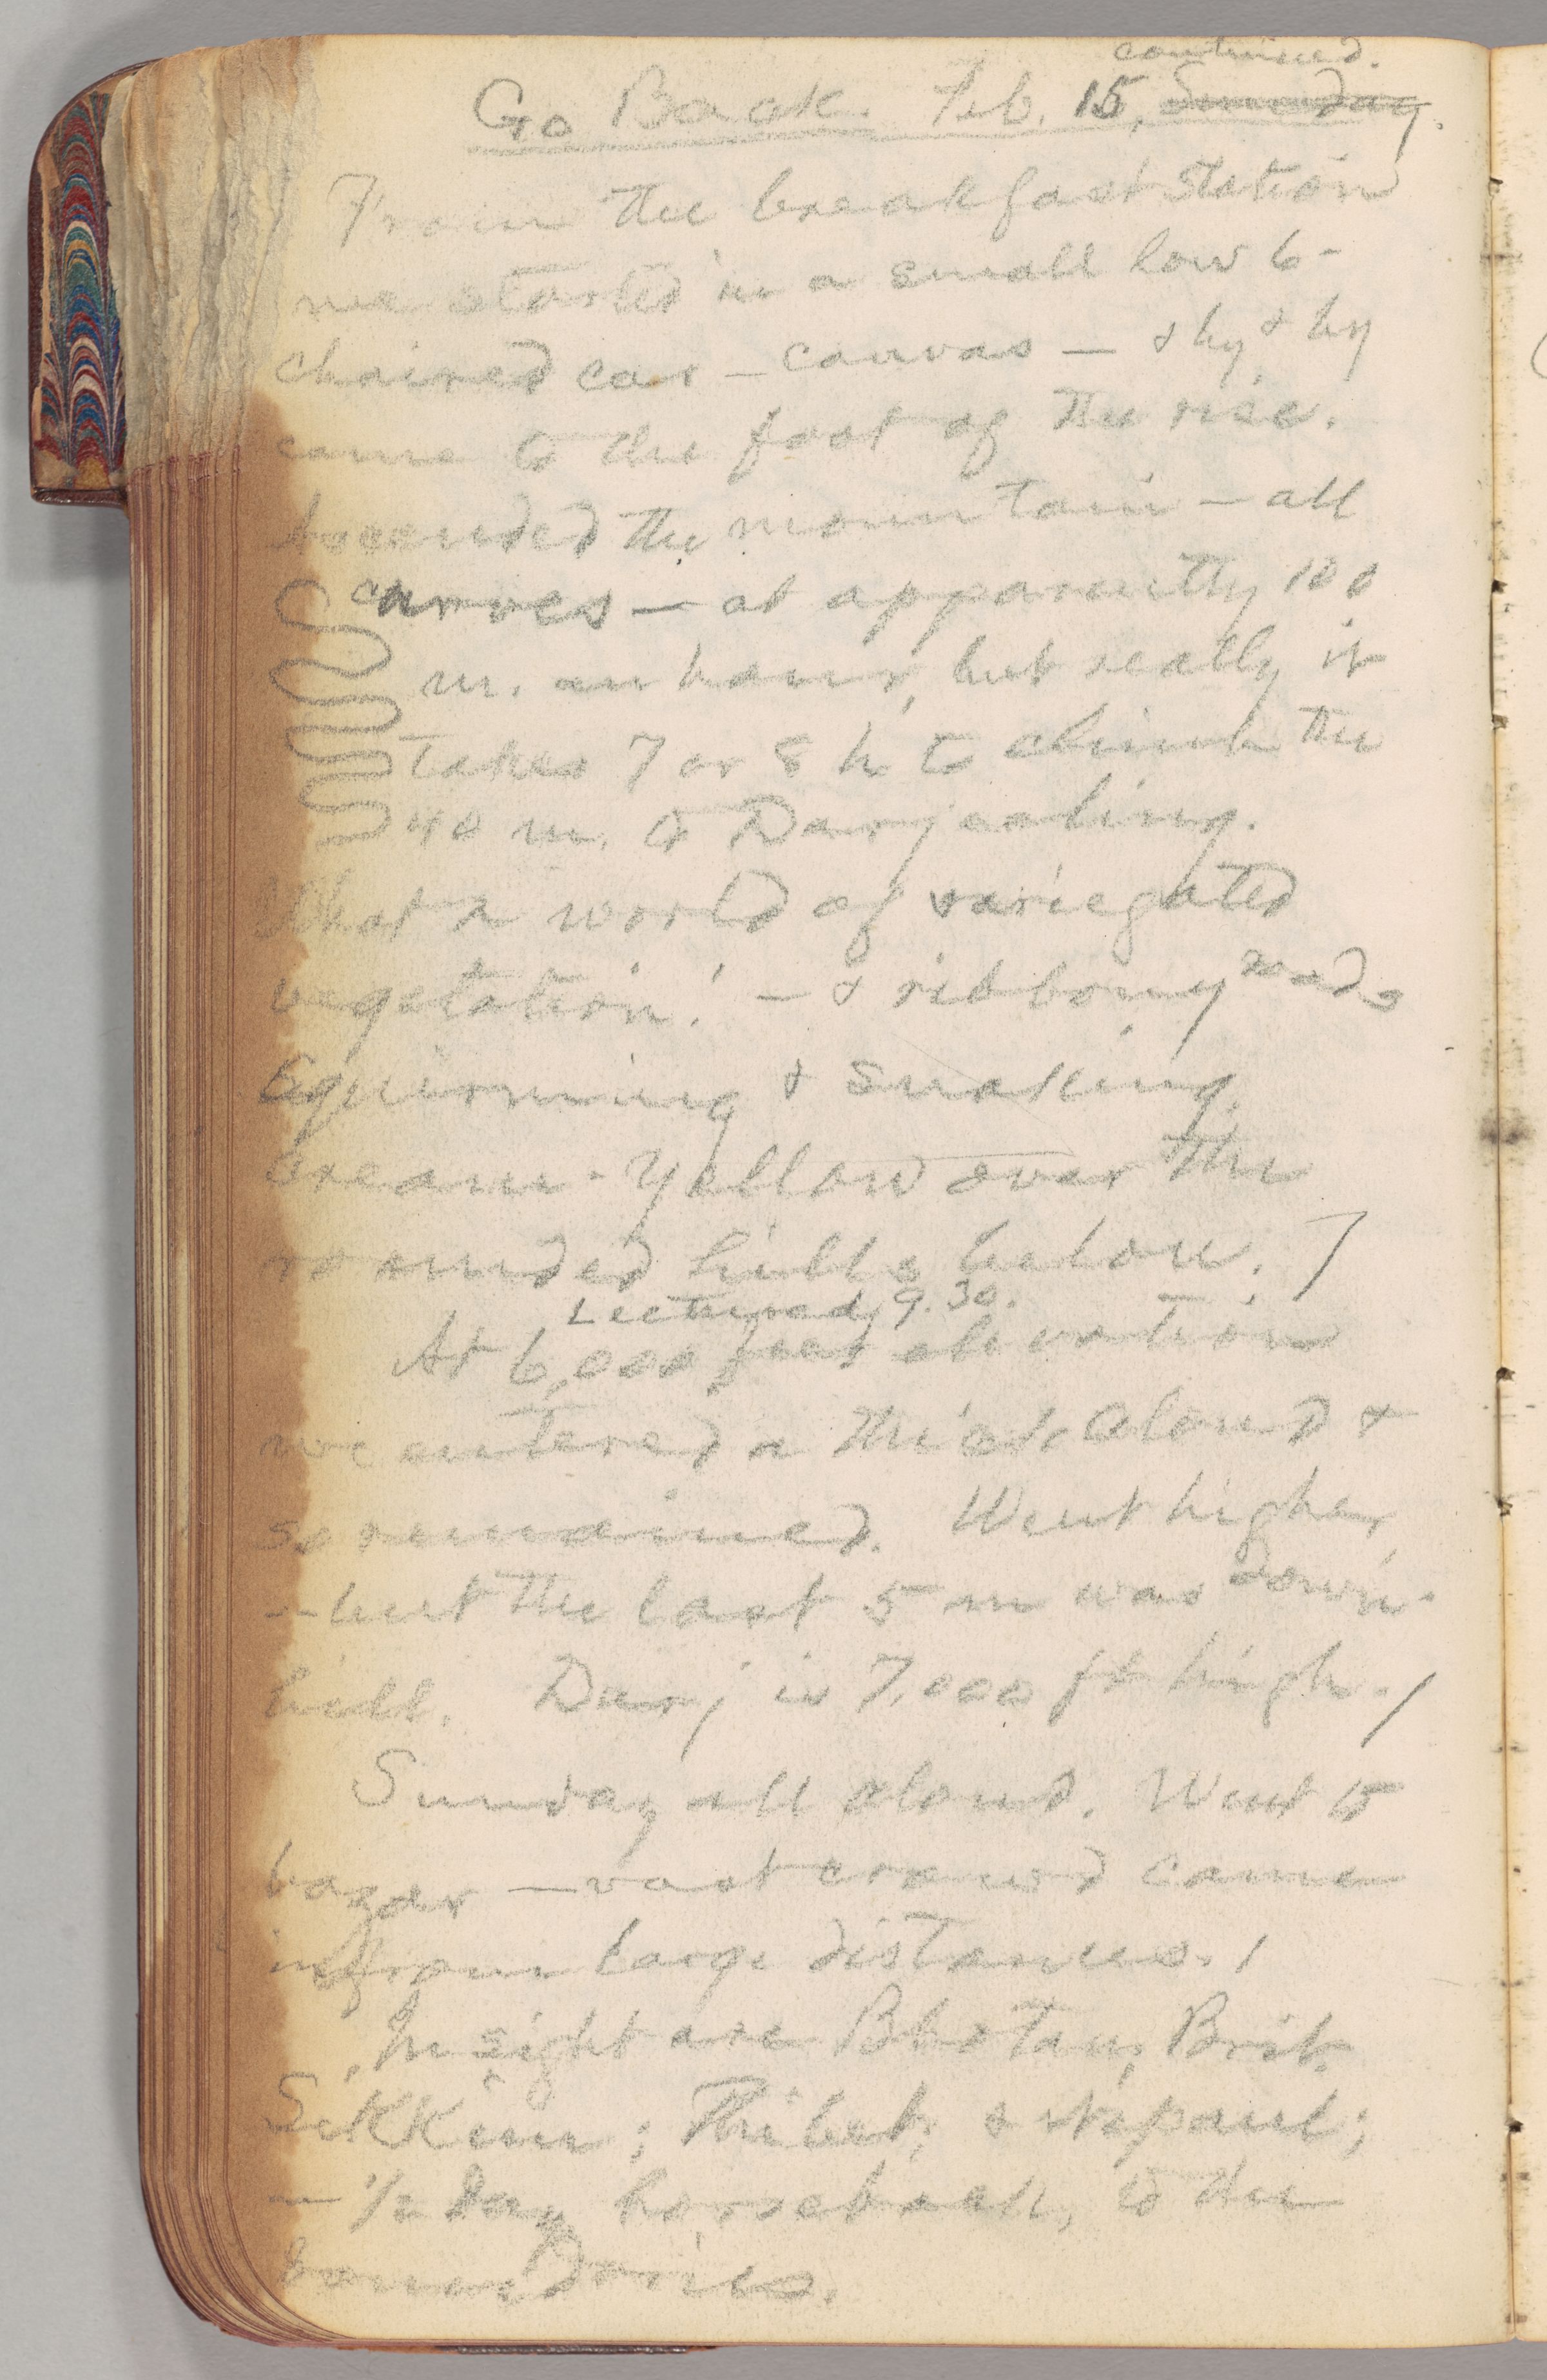 continued.
Go Back. Feb. 15, Sunday.
From the breakfast station
we started in a small low 6-
chaired car — canvas — & by & by
came to the foot of the rise.
Ascended the mountain — all
curves — at apparently 100
m. an hour, but really it
takes 7 or 8 h to climb the
40 m. to Darjeeling.
What a world of variegated
vegetation! — & ribbony roads
squirming & snaking
cream-yellow over the
rounded hills below. /
Lectured, 9.30.
At 6,000 feet elevation
we entered a thick cloud &
so remained. Went higher
— but the last 5 m was down-
hill. Darj is 7,000 ft high. /
Sunday all cloud. Went to
bazar — vast crowd came
in from large distances. /
In sight are Bhotan, Brit.
Sikkim; Thibet; & Nepaul;
— 1/2 day horseback, to the
boundaries.